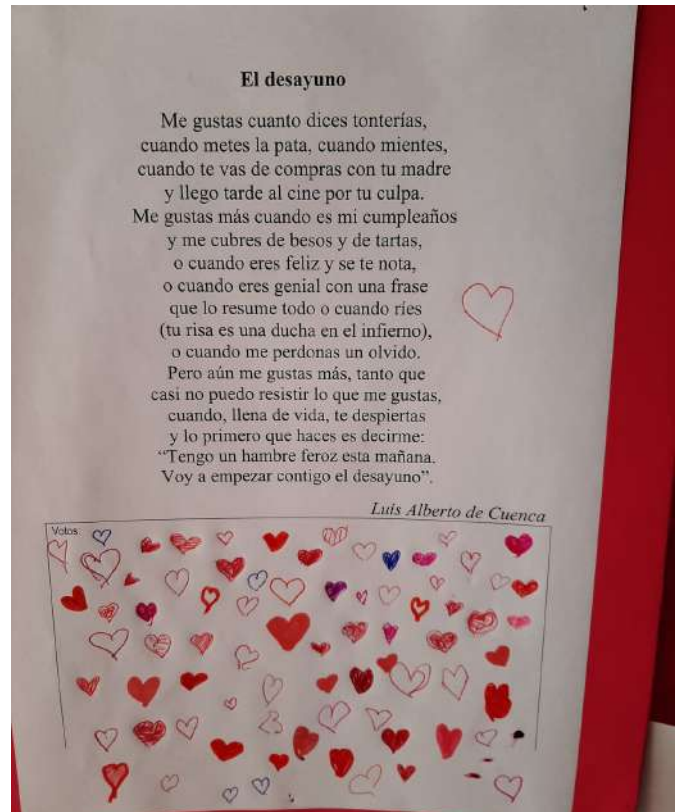 El desayuno
Me gustas cuanto dices tonterías,
cuando metes la pata, cuando mientes,
cuando te vas de compras con tu madre
y llego tarde al cine por tu culpa.
Me gustas más cuando es mi cumpleaños
y me cubres de besos y de tartas,
o cuando eres feliz y se te nota,
o cuando eres genial con una frase
que lo resume todo o cuando ríes
(tu risa es una ducha en el infierno),
o cuando me perdonas un olvido.
Pero aún me gustas más, tanto que
casi no puedo resistir lo que me gustas,
cuando, llena de vida, te despiertas
y lo primero que haces es decirme:
“Tengo un hambre feroz esta mañana.
Voy a empezar contigo el desayuno”.
Luis Alberto de Cuenca
Votos: